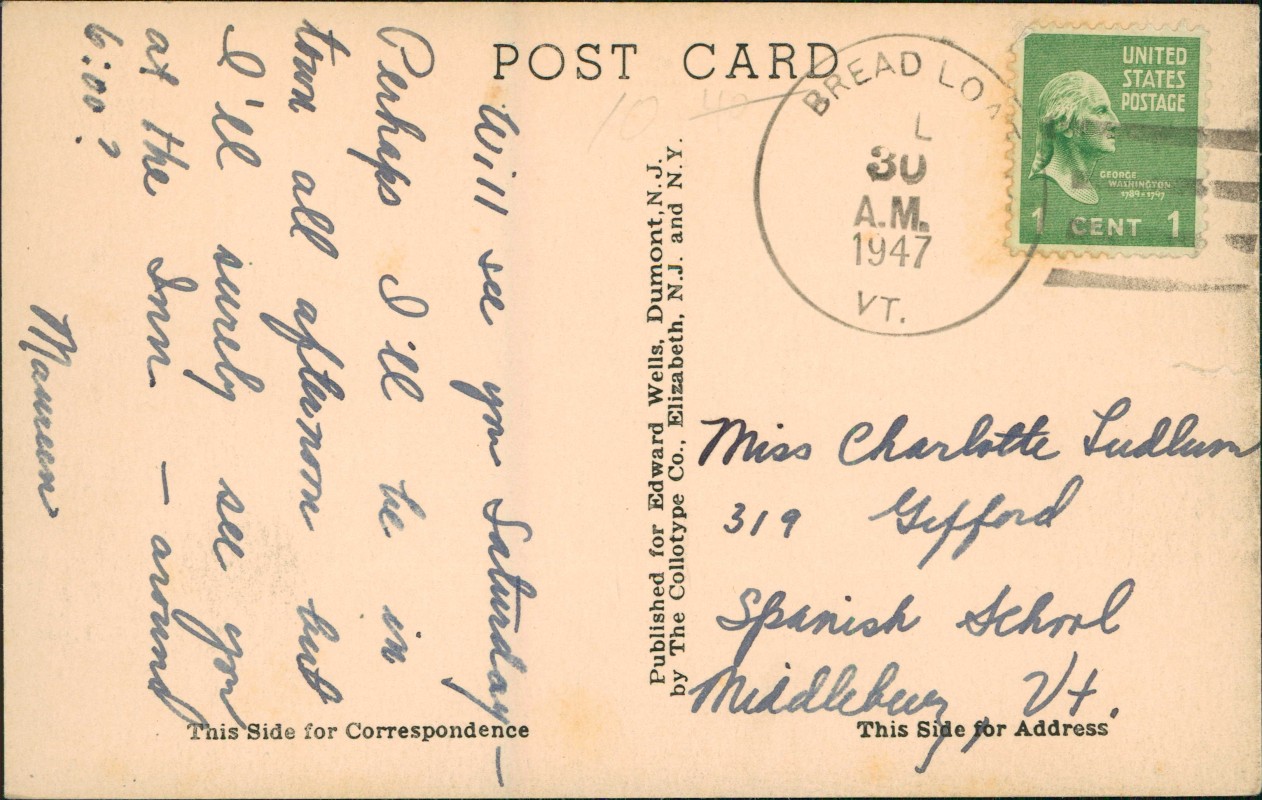 POST CARD
Will see you Saturday —
Perhaps I'll be in
town all afternoon but
I'll surely see you
at the Inn — around
6:00?
Maureen
This Side for Correspondence
Published for Edward Wells, Dumont, N.J.
by The Collotype Co., Elizabeth, N.J. and N.Y.
BREAD LOA
L
30
A.M.
1947
VT.
UNITED
STATES
POSTAGE
GEORGE
WASHINGTON
1789-1797
1 CENT 1
Miss Charlotte Ludlum
319 Gifford
Spanish School
Middlebury, Vt.
This Side for Address